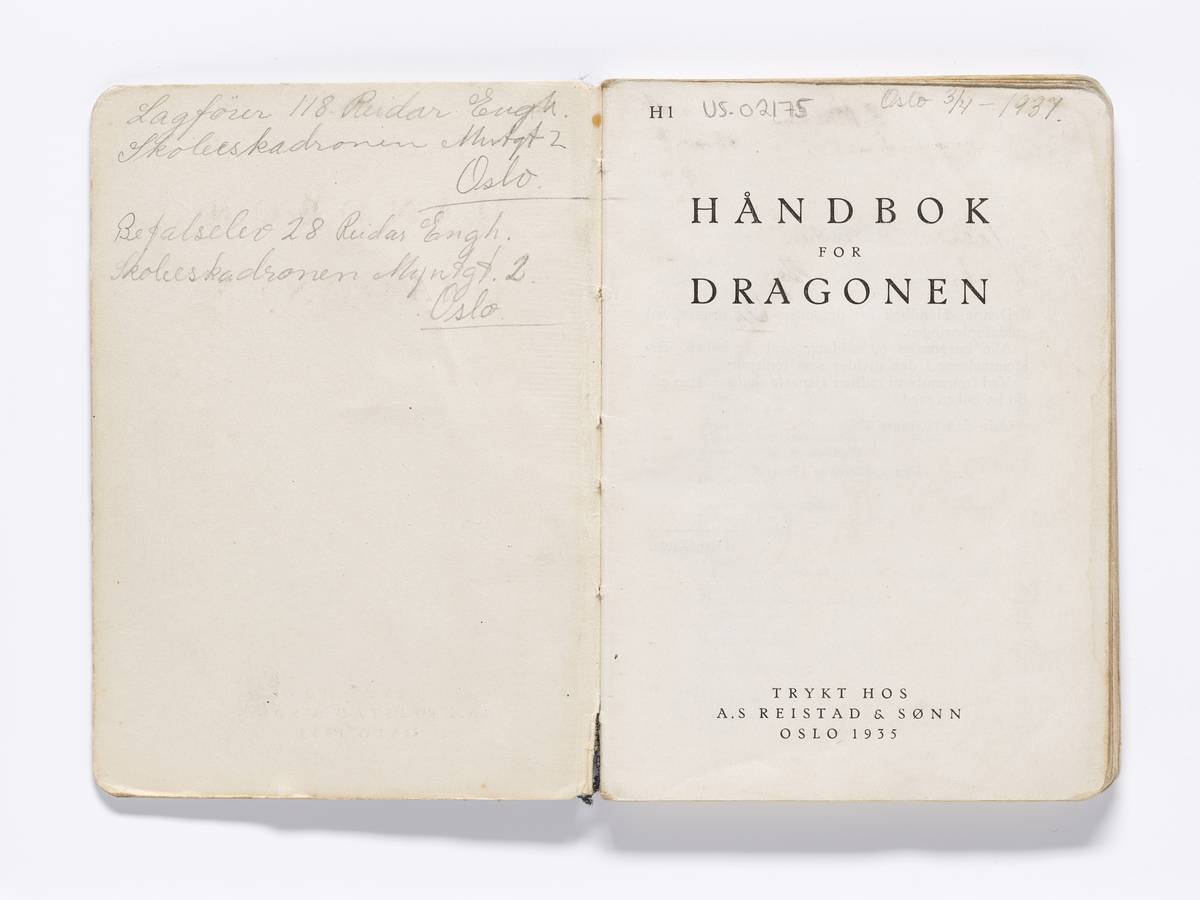 Lagförer 118 Reidar Engh.
Skoleeskadronen Myntgt 2
Oslo.
Befalselev 28 Reidar Engh.
Skoleeskadronen Myntgt. 2.
Oslo
H1 US-02175 Oslo 3/4 - 1937.
HÅNDBOK
FOR
DRAGONEN
TRYKT HOS
A.S REISTAD & SØNN
OSLO 1935